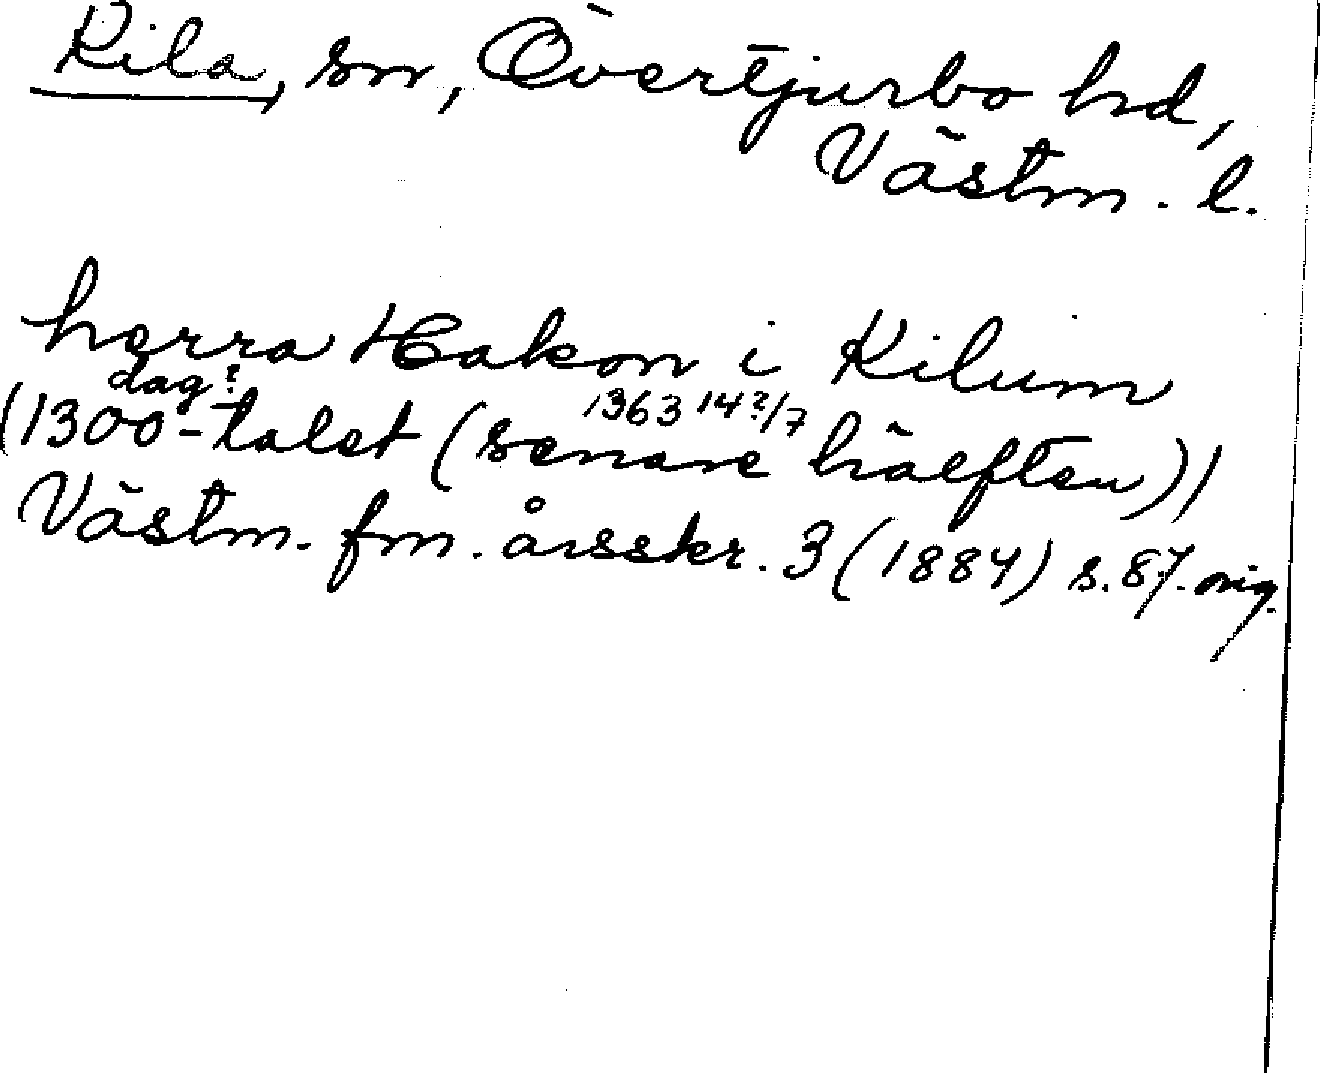 Kila, sn, Övertjurbo hd,
Västm. l.
herra Hakon i Kilum
dag? 1363 14?/7
(1300-talet (senare hälften))
Västm. fm. årsskr. 3 (1884) s. 87. orig.